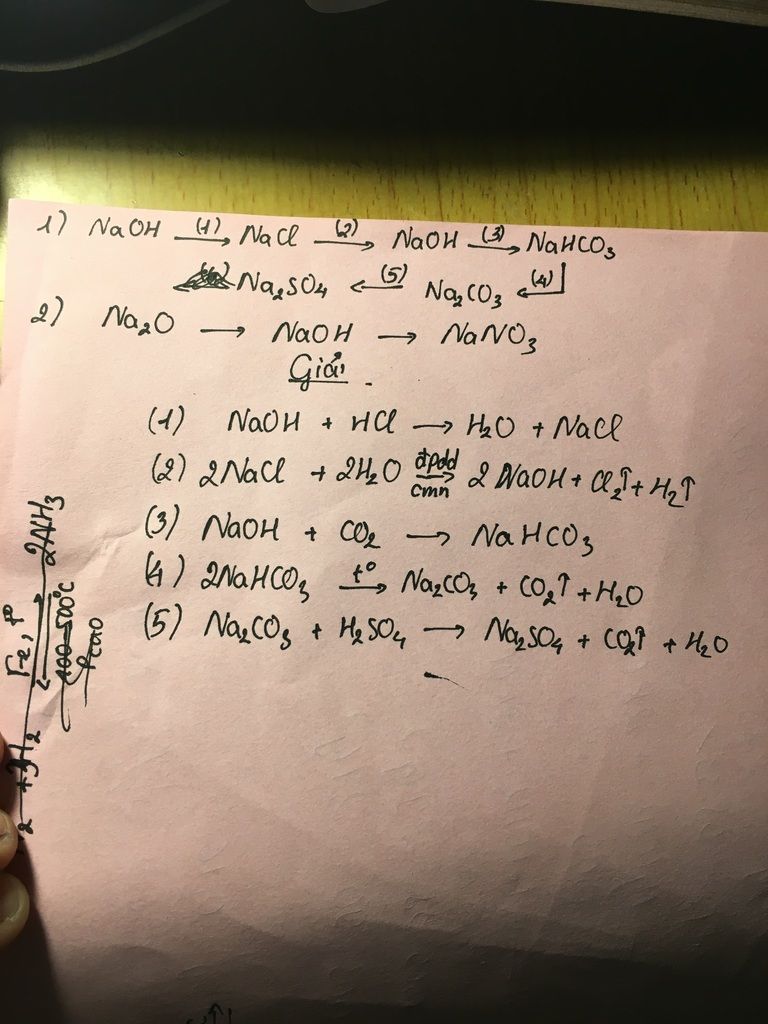 1) NaOH —(1)→ NaCl —(2)→ NaOH —(3)→ NaHCO₃
Na₂SO₄ ←(5)— Na₂CO₃ ←(4)—
2) Na₂O → NaOH → NaNO₃
Giải
(1) NaOH + HCl → H₂O + NaCl
(2) 2NaCl + 2H₂O —đpdd/cmn→ 2NaOH + Cl₂↑ + H₂↑
(3) NaOH + CO₂ → NaHCO₃
(4) 2NaHCO₃ —t°→ Na₂CO₃ + CO₂↑ + H₂O
(5) Na₂CO₃ + H₂SO₄ → Na₂SO₄ + CO₂↑ + H₂O
+3H₂ Fe, t° ⇌ 2NH₃
400-500°C
Pcao